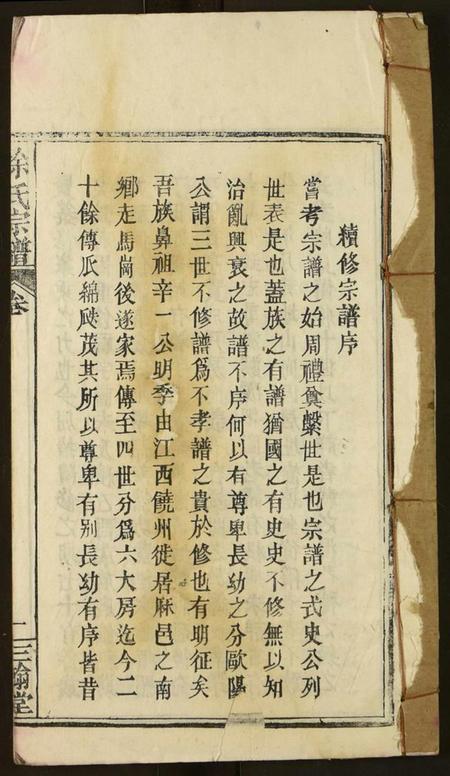 續修宗譜序
嘗考宗譜之始周禮奠繫世是也宗譜之式史公列
世表是也蓋族之有譜猶國之有史史不修無以知
治亂興衰之故譜不序何以有尊卑長幼之分歐陽
公謂三世不修譜爲不孝譜之貴於修也有明征矣
吾族鼻祖辛一公明季由江西饒州徙居麻邑之南
鄉走馬崗後遂家焉傳至四世分爲六大房迄今二
十餘傳瓜綿瓞茂其所以尊卑有别長幼有序皆昔
徐氏宗譜
卷
一
三翰堂